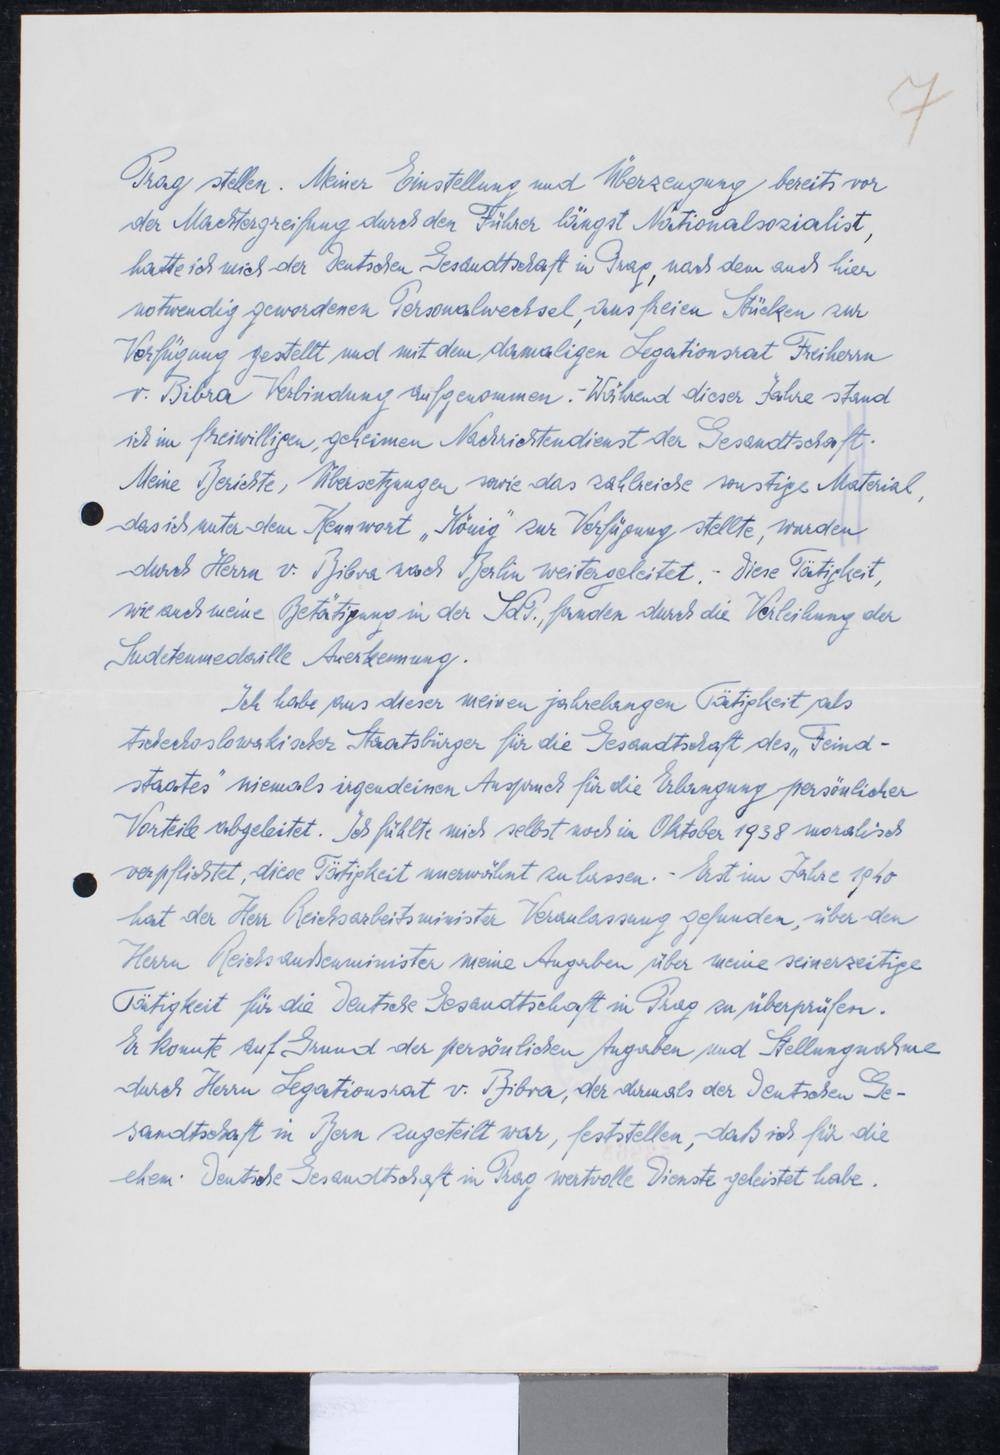 7
Prag stellen. Meiner Einstellung und Überzeugung bereits vor
der Machtergreifung durch den Führer längst Nationalsozialist,
hatte ich mich der Deutschen Gesandtschaft in Prag, nach dem auch hier
notwendig gewordenen Personalwechsel, aus freien Stücken zur
Verfügung gestellt und mit dem damaligen Legationsrat Freiherrn
v. Bibra Verbindung aufgenommen. - Während dieser Jahre stand
ich im freiwilligen, geheimen Nachrichtendienst der Gesandtschaft.
Meine Berichte, Übersetzungen sowie das zahlreiche sonstige Material,
das ich unter dem Kennwort „König" zur Verfügung stellte, wurden
durch Herrn v. Bibra nach Berlin weitergeleitet. - Diese Tätigkeit,
wie auch meine Betätigung in der SdP., fanden durch die Verleihung der
Sudetenmedaille Anerkennung.
Ich habe aus dieser meinen jahrelangen Tätigkeit als
tschechoslowakischer Staatsbürger für die Gesandtschaft des „Feind-
staates" niemals irgendeinen Anspruch für die Erlangung persönlicher
Vorteile abgeleitet. Ich fühlte mich selbst noch im Oktober 1938 moralisch
verpflichtet, diese Tätigkeit unerwähnt zu lassen. - Erst im Jahre 1940
hat der Herr Reichsarbeitsminister Veranlassung gefunden, über den
Herrn Reichsaußenminister meine Angaben über meine seinerzeitige
Tätigkeit für die Deutsche Gesandtschaft in Prag zu überprüfen.
Er konnte auf Grund der persönlichen Angaben und Stellungnahme
durch Herrn Legationsrat v. Bibra, der damals der Deutschen Ge-
sandtschaft in Bern zugeteilt war, feststellen, daß ich für die
ehem. Deutsche Gesandtschaft in Prag wertvolle Dienste geleistet habe.